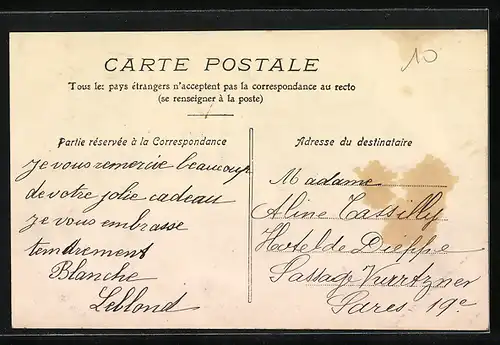 10
CARTE POSTALE
Tous les pays étrangers n'acceptent pas la correspondance au recto
(se renseigner à la poste)
Partie réservée à la Correspondance
Je vous remercie beaucoup
de votre jolie cadeau
je vous embrasse
tendrement
Blanche
Leblond
Adresse du destinataire
Madame
Aline Tassilly
Hotel de Dieppe
Passage
Paris 19e